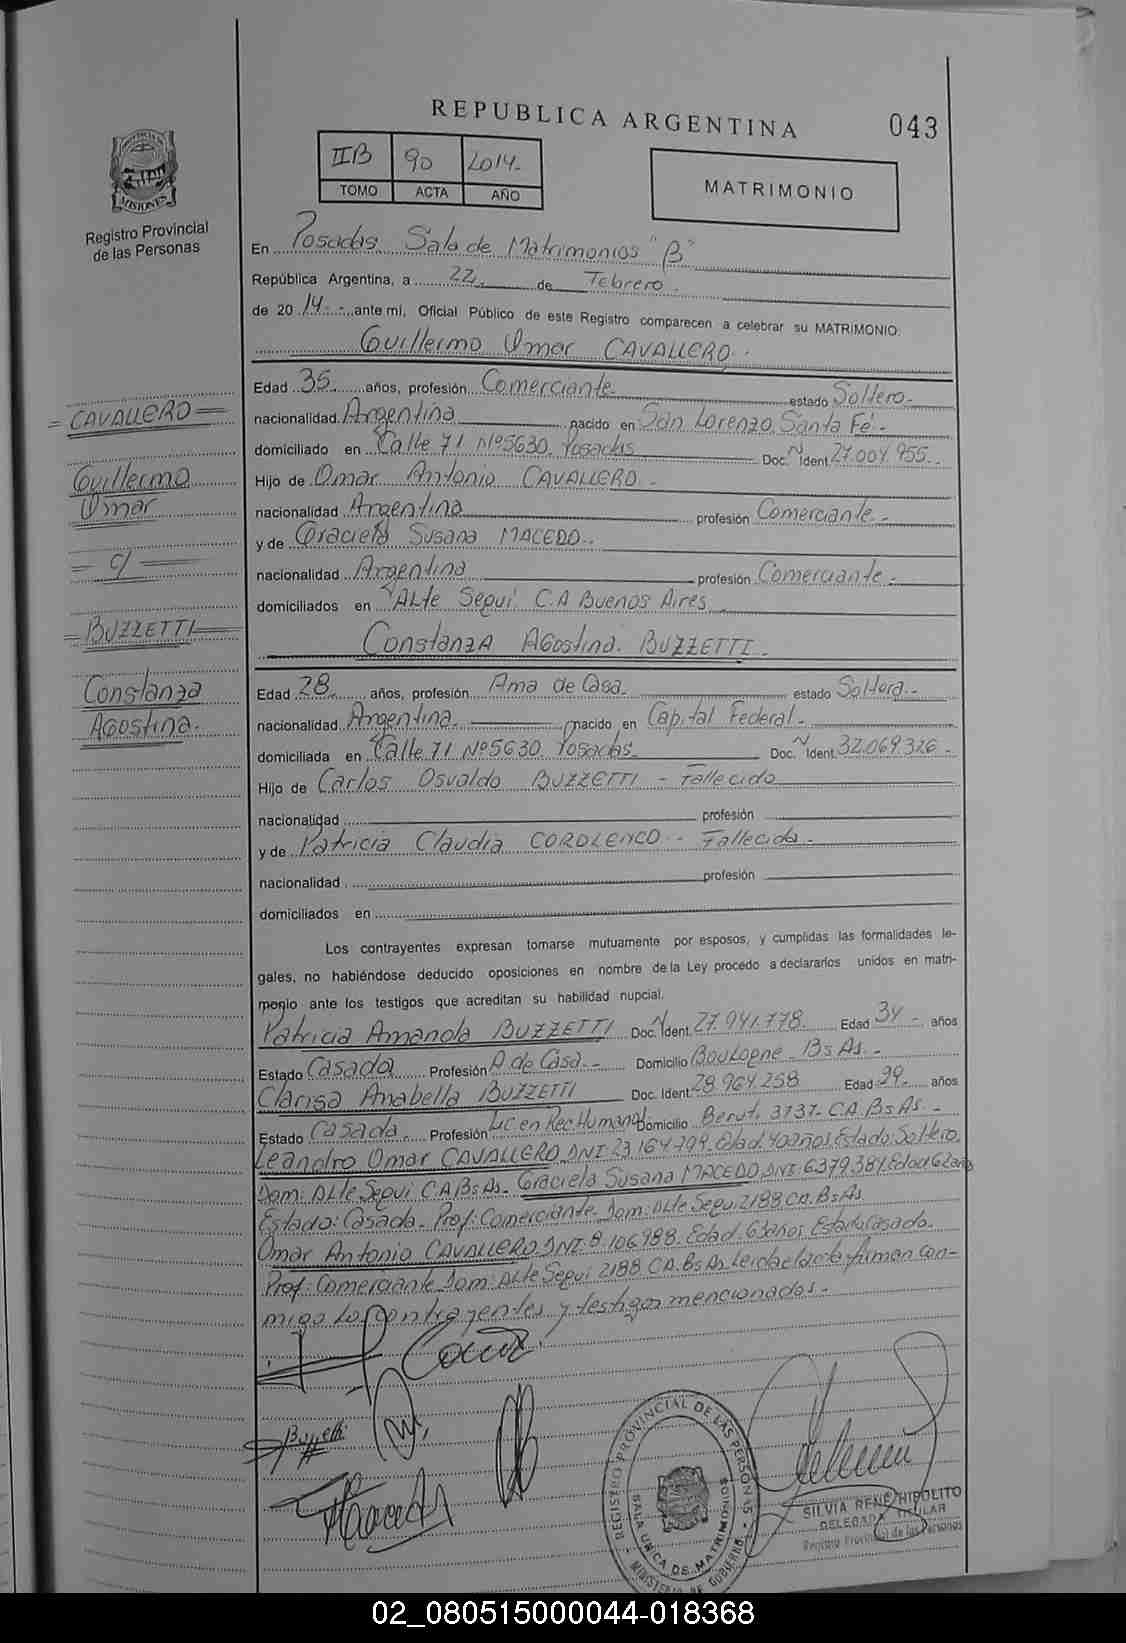 REPUBLICA ARGENTINA
043
IIB 90 2014.-
TOMO ACTA AÑO
MATRIMONIO
MISIONES
Registro Provincial
de las Personas
En Posadas Sala de Matrimonios "B"
República Argentina, a 22 de Febrero.
de 2014.- ante mí, Oficial Público de este Registro comparecen a celebrar su MATRIMONIO:
Guillermo Omar CAVALLERO.
Edad 35 años, profesión Comerciante estado Soltero.-
nacionalidad Argentina nacido en San Lorenzo, Santa Fé.-
domiciliado en Calle 71 Nº5630. Posadas Doc. N Ident. 27.004.955.-
Hijo de Omar Antonio CAVALLERO.-
nacionalidad Argentina profesión Comerciante.-
y de Graciela Susana MACEDO.-
nacionalidad Argentina profesión Comerciante.-
domiciliados en Alte Segui C.A Buenos Aires.
Constanza Agostina. BUZZETTI.-
Edad 28 años, profesión Ama de Casa estado Soltera.-
nacionalidad Argentina. nacido en Capital Federal.-
domiciliada en Calle 71 Nº5630. Posadas Doc. N Ident. 32.069.326.-
Hijo de Carlos Osvaldo BUZZETTI - Fallecido
nacionalidad profesión
y de Patricia Claudia COROLENCO - Fallecida.-
nacionalidad profesión
domiciliados en
Los contrayentes expresan tomarse mutuamente por esposos, y cumplidas las formalidades le-
gales, no habiéndose deducido oposiciones en nombre de la Ley procedo a declararlos unidos en matri-
monio ante los testigos que acreditan su habilidad nupcial.
Patricia Amanda BUZZETTI Doc. N Ident. 27.941.778. Edad 34.- años
Estado Casada Profesión A de Casa.- Domicilio Boulogne - Bs As.-
Clarisa Anabella BUZZETTI Doc. Ident. 28.964.258 Edad años
Estado Casada. Profesión Lic en Rec Humanos Domicilio Beruti 3737- C.A. Bs As.-
Leandro Omar CAVALLERO DNI 23.164.794. Edad 40 años Estado Soltero.
Dom: Alte Segui C.A Bs As- Graciela Susana MACEDO DNI 6.379.384 Edad 62 años
Estado: Casada. Prof: Comerciante. Dom: Alte Segui 2188 C.A. Bs As.
Omar Antonio CAVALLERO DNI 8.106.988. Edad 63 años Estado Casado.
Prof: Comerciante Dom: Alte Segui 2188 C.A. Bs As. Leida el acta firman con-
migo los contrayentes y testigos mencionados.-
= CAVALLERO =
Guillermo
Omar
= c/ =
= BUZZETTI =
Constanza
Agostina.
REGISTRO PROVINCIAL DE LAS PERSONAS
SALA UNICA DE MATRIMONIOS
MINISTERIO DE GOBIERNO
SILVIA RENE HIPOLITO
DELEGADA TITULAR
Registro Provincial de las Personas
02_080515000044-018368